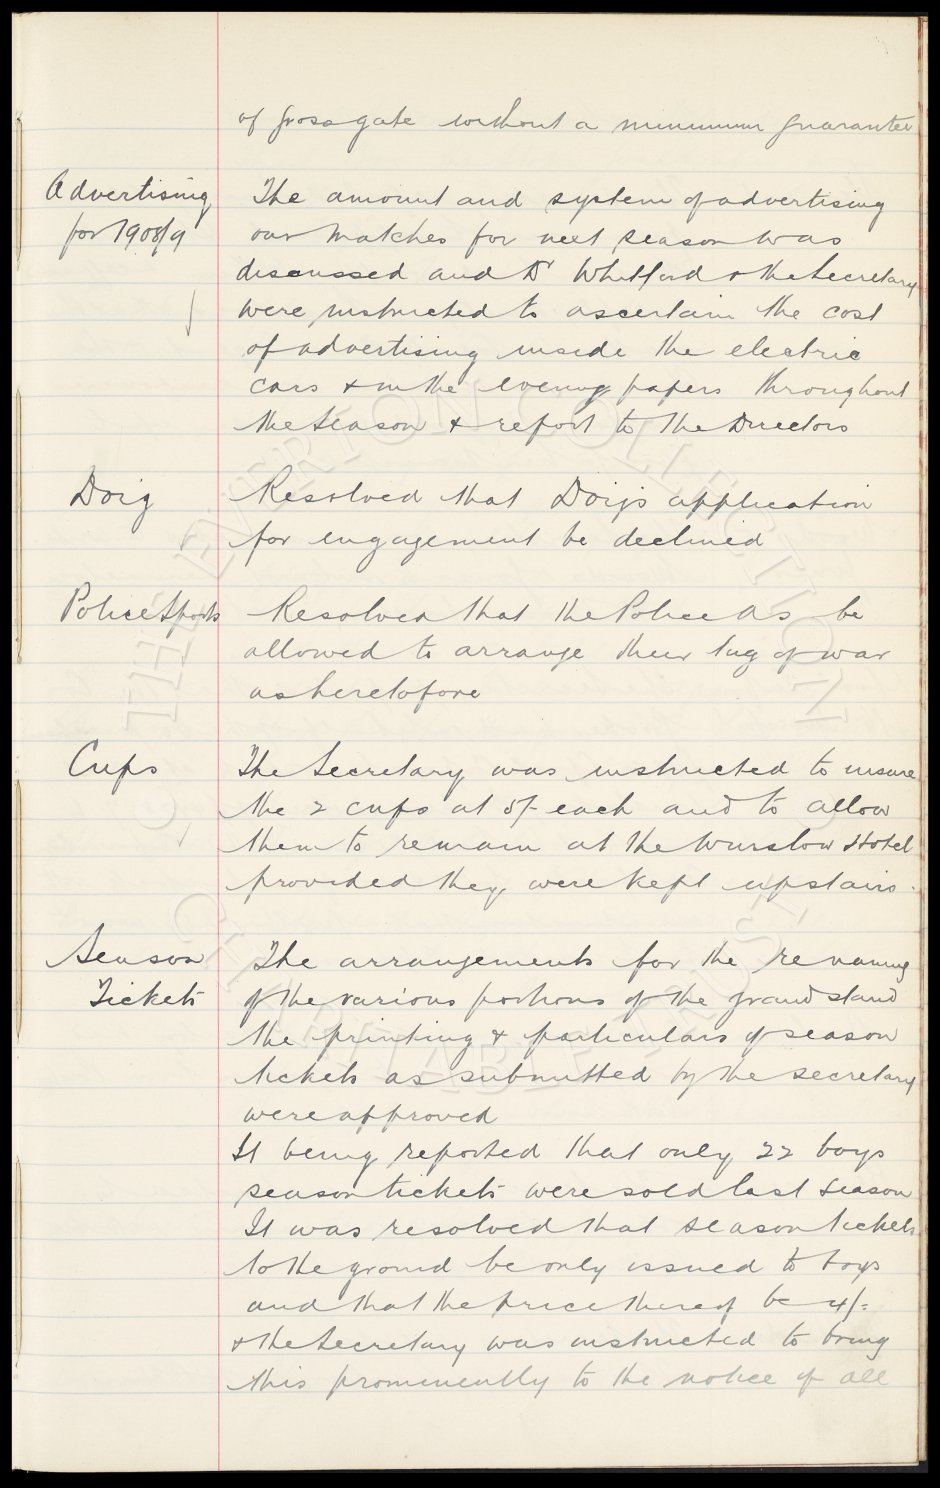 of gross gate without a minimum guarantee
Advertising The amount and system of advertising
for 1908/9 our matches for next season was
discussed and Dr Whitford & the Secretary
were instructed to ascertain the cost
of advertising inside the electric
cars & in the evening papers throughout
the Season & report to the Directors
Doig Resolved that Doig's application
for engagement be declined
Police Sports Resolved that the Police As be
allowed to arrange their tug of war
as heretofore
Cups The Secretary was instructed to insure
the 2 cups at 5/- each and to allow
them to remain at the Winslow Hotel
provided they were kept upstairs.
Season The arrangements for the renaming
Tickets of the various portions of the grand stand
the printing & particulars of season
tickets as submitted by the secretary
were approved
It being reported that only 22 boys
season tickets were sold last season
It was resolved that season tickets
to the ground be only issued to boys
and that the price thereof be 4/-
& the Secretary was instructed to bring
this prominently to the notice of all
© THE EVERTON COLLECTION
CHARITABLE TRUST